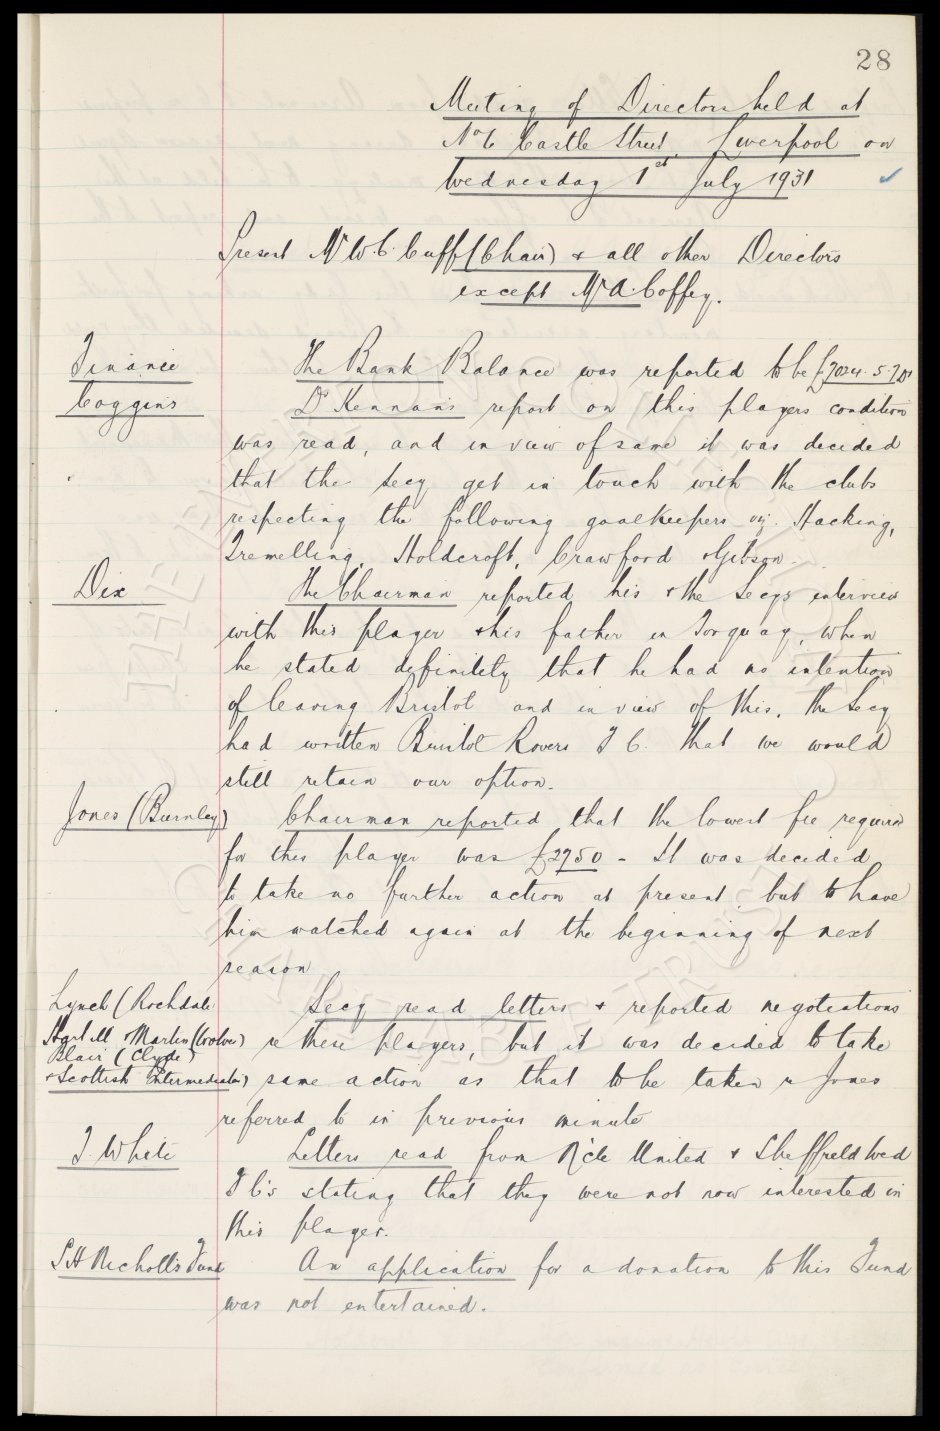 28
Meeting of Directors held at
No 6 Castle Street, Liverpool on
Wednesday 1st July 1931
Present Mr W.C. Cuff (Chair) & all other Directors
except Mr A. Coffey.
Finance The Bank Balance was reported to be £7024.5.7 Dr
Coggins Dr Kennan's report on this players condition
was read, and in view of same it was decided
that the Secy get in touch with the clubs
respecting the following goalkeepers viz. Hacking,
Tremelling, Holdcroft, Crawford & Gibson.
Dix The Chairman reported his & the Secys interview
with this player & his father in Torquay, when
he stated definitely that he had no intention
of leaving Bristol and in view of this, the Secy
had written Bristol Rovers F C. that we would
still retain our option.
Jones (Burnley) Chairman reported that the lowest fee required
for this player was £2750 - It was decided
to take no further action at present, but to have
him watched again at the beginning of next
season
Lynch (Rochdale Secy read letters & reported negotiations
Hartill & Martin (Wolves) re these players, but it was decided to take
Blair (Clyde)
& Scottish Intermediates) same action as that to be taken re Jones
referred to in previous minute
T. White Letters read from N'cle United & Sheffield Wed
F C's stating that they were not now interested in
this player.
S H Nicholls Fund An application for a donation to this Fund
was not entertained.